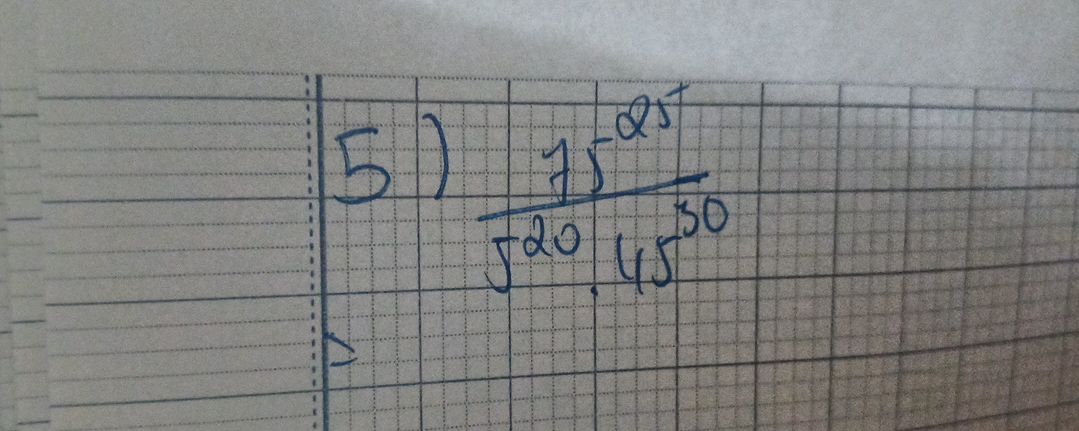 5) 75^25
5^20 . 45^30